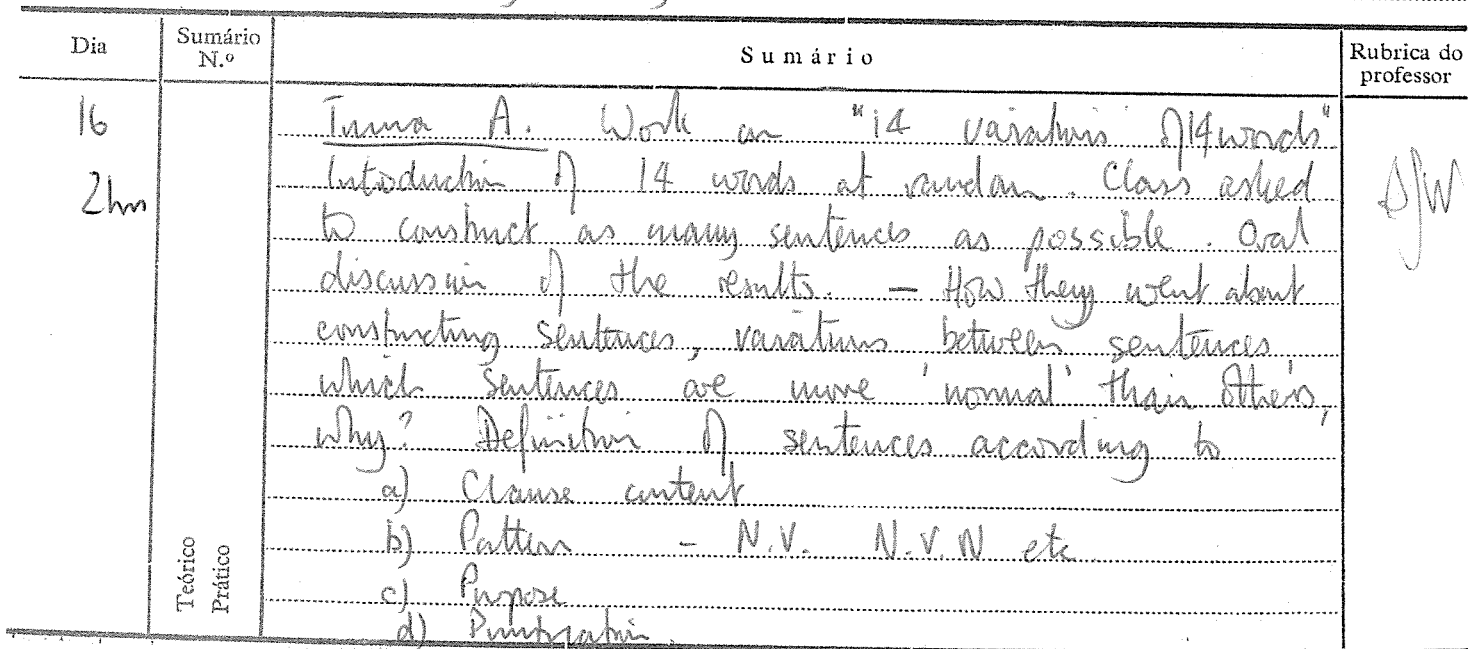 Dia
Sumário N.º
Sumário
Rubrica do professor
16
2hrs
Turma A. Work on "14 variations of 14 words"
Introduction of 14 words at random. Class asked
to construct as many sentences as possible. Oral
discussion of the results. – How they went about
constructing sentences, variations between sentences,
which sentences are more 'normal' than others,
why? Definition of sentences according to
a) Clause content
b) Pattern - N.V. N.V.N etc
c) Purpose
d) Punctuation.
Teórico
Prático